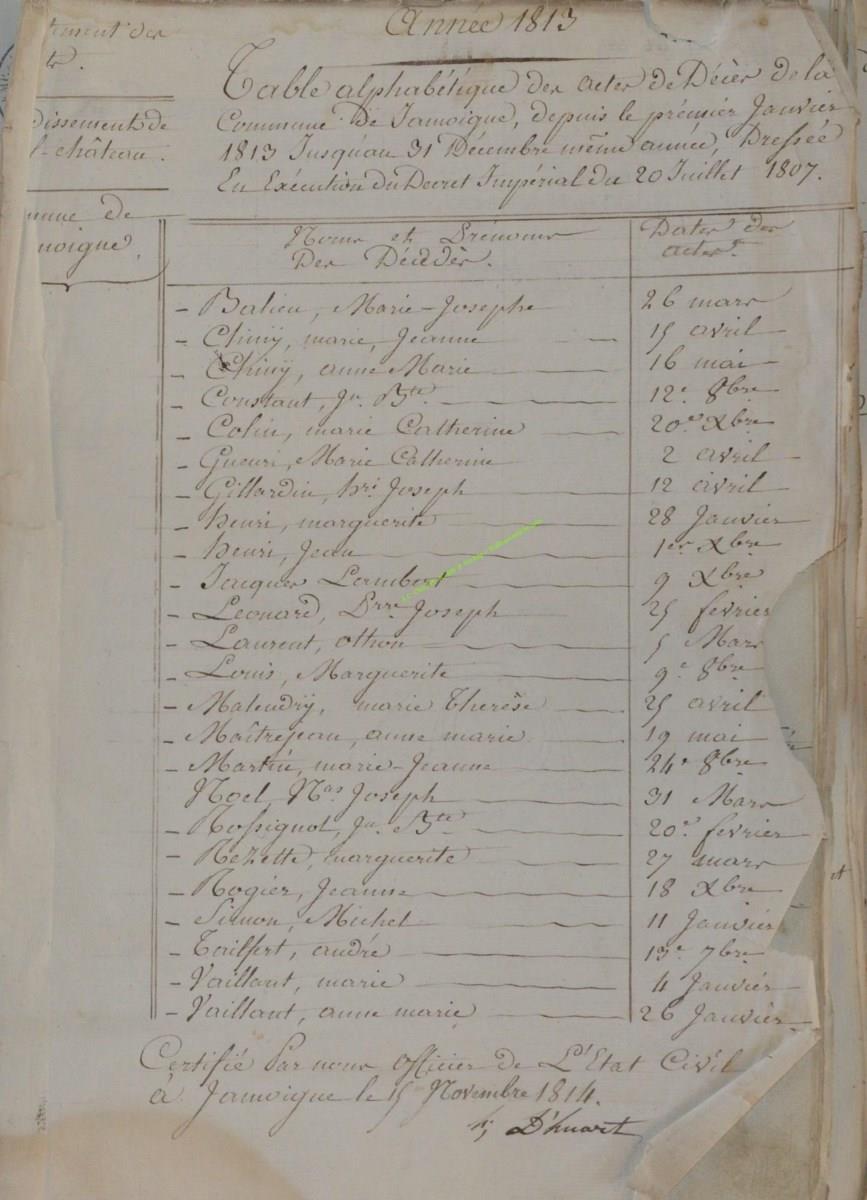 Année 1813
Table alphabétique des actes de Décès de la
Commune De Jamoigne, depuis le prémier Janvier
1813 Jusqu'au 31 Décembre même année, Dressée
En Exécution du Decret Impérial du 20 Juillet 1807.
dissement de
château.
mune de
moigne
Noms et Prénoms
Des Décédés.
Dates des
actes
- Marie-Josephe 26 mars
- Chiny, marie, Jeanne 15 avril
- Chiny, anne Marie 16 mai
- Constant, Jn. Bte. 12e 8bre
- Colin, marie Catherine 20e Xbre
- Marie Catherine 2 avril
- Gillardin, hri Joseph 12 avril
- henri, marguerite 28 Janvier
- henri, Jean 1er Xbre
- Jacques Lambert 9 Xbre
- Leonard, Prre Joseph 25 fevrier
- Laurent, othon 5 Mars
- Louis, Marguerite 9e 8bre
- marie Therèse 25 avril
- Maîtrejean, anne marie 19 mai
- Martin, marie-Jeanne 24e 8bre
Noel, Nas Joseph 31 Mars
- Rossignol, Jn. Bte 20e fevrier
- Rezette, marguerite 27 mars
- Rogier, Jeanne 18 Xbre
- Simon, Michel 11 Janvier
- andré 13e 7bre
- Vaillant, marie 4 Janvier
- Vaillant, anne marie 26 Janvier
Certifié Par nous officier de L'Etat Civil
à Jamoigne le 15 Novembre 1814.
D'huart